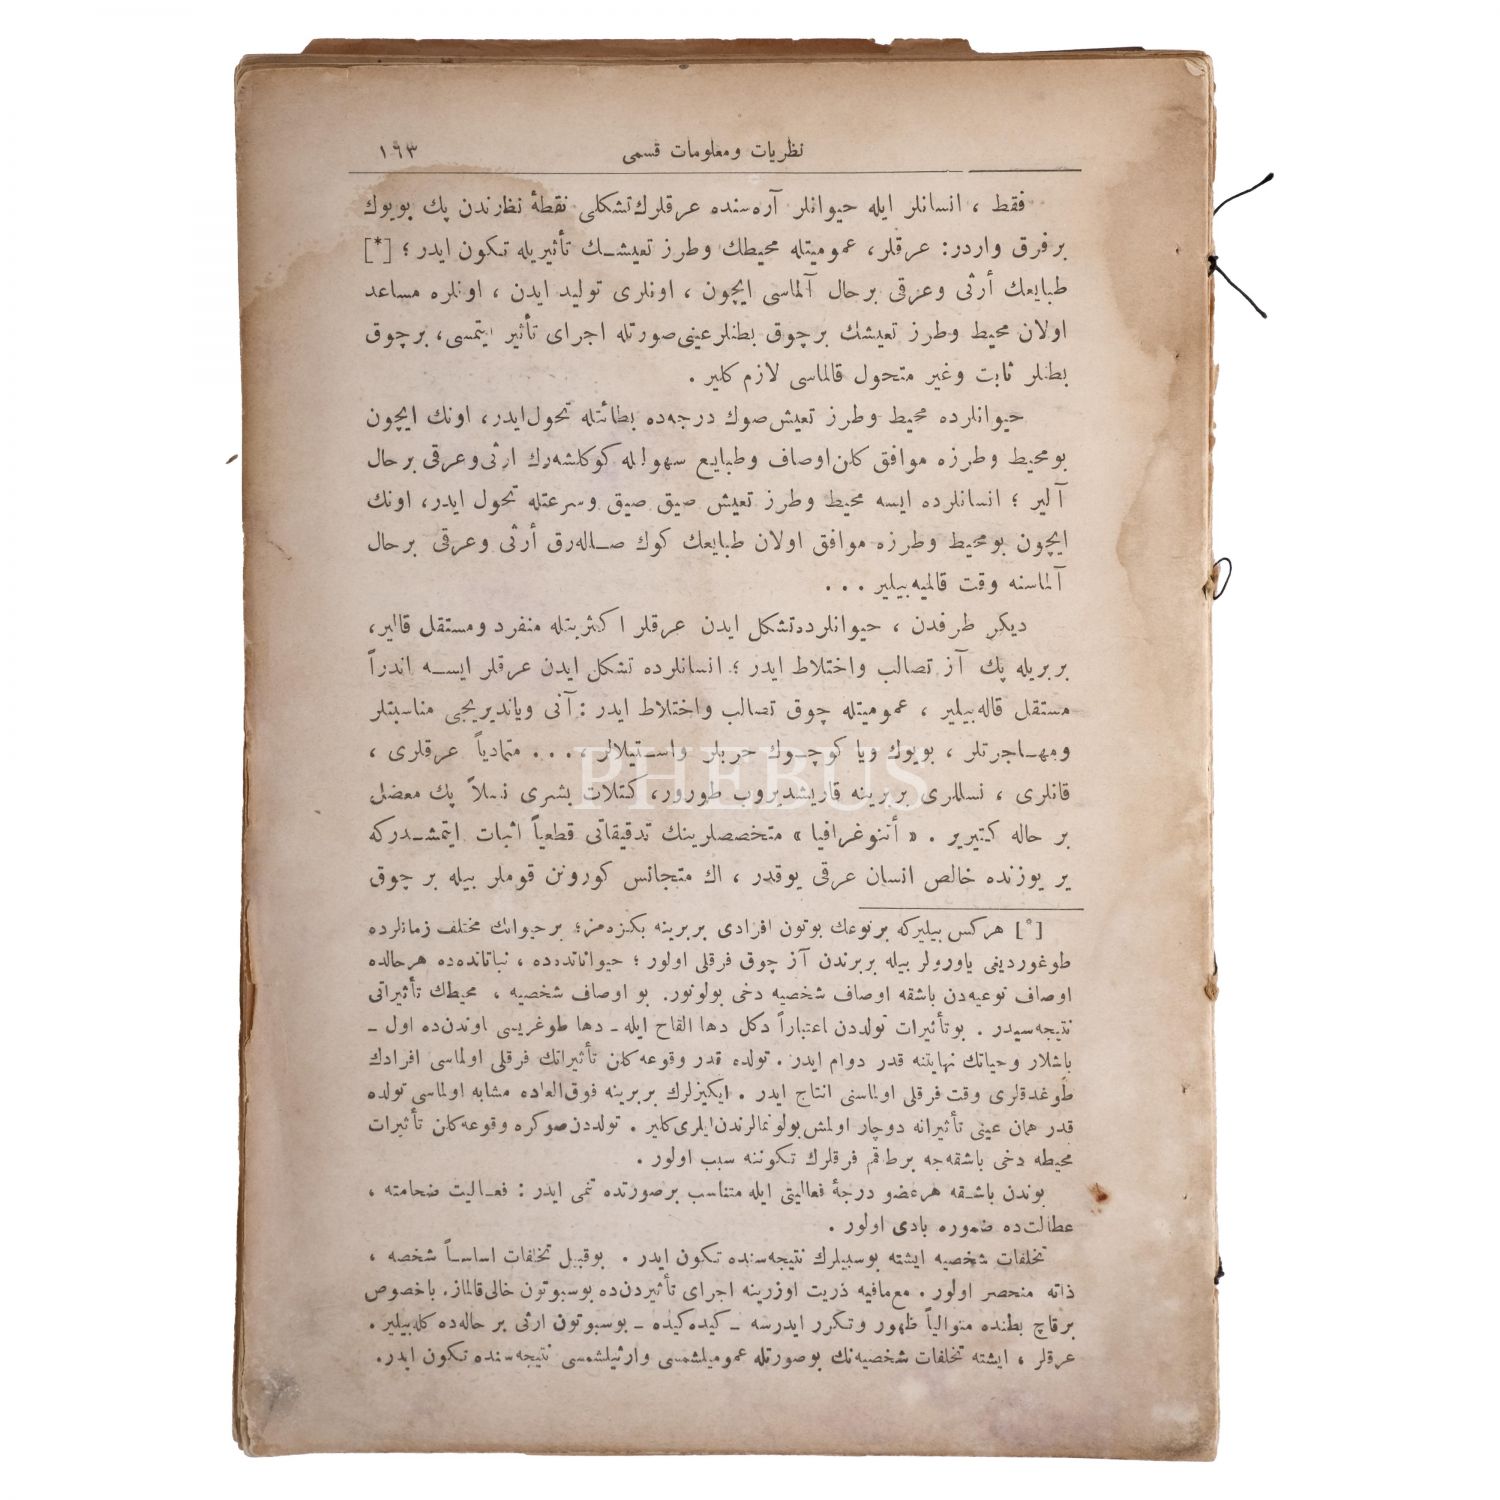 نظريات و معلومات قسمى
١٩٣
فقط ، انسانلر ايله حيوانلر آره‌سنده عرقلرك تشكلى نقطۀ نظرندن پك بويوك
بر فرق واردر: عرقلر، عموميتله محيطك و طرز تعيشك تأثيريله تكون ايدر ؛ [*]
طبايعك أرثى و عرقى بر حال آلماسى ايچون ، اونلرى توليد ايدن ، اونلره مساعد
اولان محيط و طرز تعيشك بر چوق بطنلر عينى صورتله اجراى تأثير ايتمسى، بر چوق
بطنلر ثابت و غير متحول قالماسى لازم كلير .
حيوانلرده محيط و طرز تعيش صوك درجه‌ده بطائتله تحول ايدر، اونك ايچون
بو محيط و طرزه موافق كلن اوصاف و طبايع سهولتله كوكلشه‌رك ارثى و عرقى بر حال
آلير ؛ انسانلرده ايسه محيط و طرز تعيش صيق صيق و سرعتله تحول ايدر، اونك
ايچون بو محيط و طرزه موافق اولان طبايعك كوك صاله‌رق أرثى و عرقى بر حال
آلماسنه وقت قالميه‌بيلير . . .
ديكر طرفدن ، حيوانلرده تشكل ايدن عرقلر اكثريتله منفرد و مستقل قالير،
بربريله پك آز تصالب و اختلاط ايدر ؛ انسانلرده تشكل ايدن عرقلر ايسه اندراً
مستقل قاله‌بيلير ، عموميتله چوق تصالب و اختلاط ايدر : آنى ويا تديريجى مناسبتلر
و مهاجرتلر ، بويوك ويا كوچوك حربلر و استيلالر ، . . . متمادياً عرقلرى ،
PHEBUS
قانلرى ، نسللرى بربرينه قاريشديروب طورور، كتلات بشرى نسلاً پك معضل
بر حاله كتيرير . « أتنوغرافيا » متخصصلرينك تدقيقاتى قطعياً اثبات ايتمشدركه
ير يوزنده خالص انسان عرقى يوقدر ، اك متجانس كورونن قوملر بيله بر چوق
[*] هركس بيليركه بر نوعك بوتون افرادى بربرينه بكزه‌مز؛ بر حيوانك مختلف زمانلرده
طوغورديغى ياورولر بيله بربرندن آز چوق فرقلى اولور ؛ حيواناتده‌ده ، نباتاتده‌ده هر حالده
اوصاف نوعيه‌دن باشقه اوصاف شخصيه دخى بولونور. بو اوصاف شخصيه ، محيطك تأثيراتى
نتيجه‌سيدر . بو تأثيرات تولددن اعتباراً دكل دها القاح ايله - دها طوغريسى اوندن‌ده اول -
باشلار و حياتك نهايتنه قدر دوام ايدر . تولده قدر وقوعه كلن تأثيراتك فرقلى اولماسى افرادك
طوغدقلرى وقت فرقلى اولماسنى انتاج ايدر . ايكيزلرك بربرينه فوق‌العاده مشابه اولماسى تولده
قدر همان عينى تأثيراته دوچار اولمش بولونمالرندن ايلرى كلير . تولددن صوكره وقوعه كلن تأثيرات
محيطه دخى باشقه‌جه بر طقم فرقلرك تكوننه سبب اولور .
بوندن باشقه هر عضو درجۀ فعاليتى ايله متناسب بر صورتده تنمى ايدر : فعاليت ضخامته ،
عطالت‌ده ضموره بادى اولور .
تخلفات شخصيه ايشته بو سببلرك نتيجه‌سنده تكون ايدر . بو قبيل تخلفات اساساً شخصه ،
ذاته منحصر اولور . مع‌مافيه ذريت اوزرينه اجراى تأثيردن‌ده بوسبوتون خالى قالماز. باخصوص
بر قاچ بطنده متوالياً ظهور و تكرر ايدرسه - كيده كيده - بوسبوتون ارثى بر حاله‌ده كله‌بيلير .
عرقلر ، ايشته تخلفات شخصيه‌نك بو صورتله عموميلشمسى و ارثيلشمسى نتيجه‌سنده تكون ايدر.